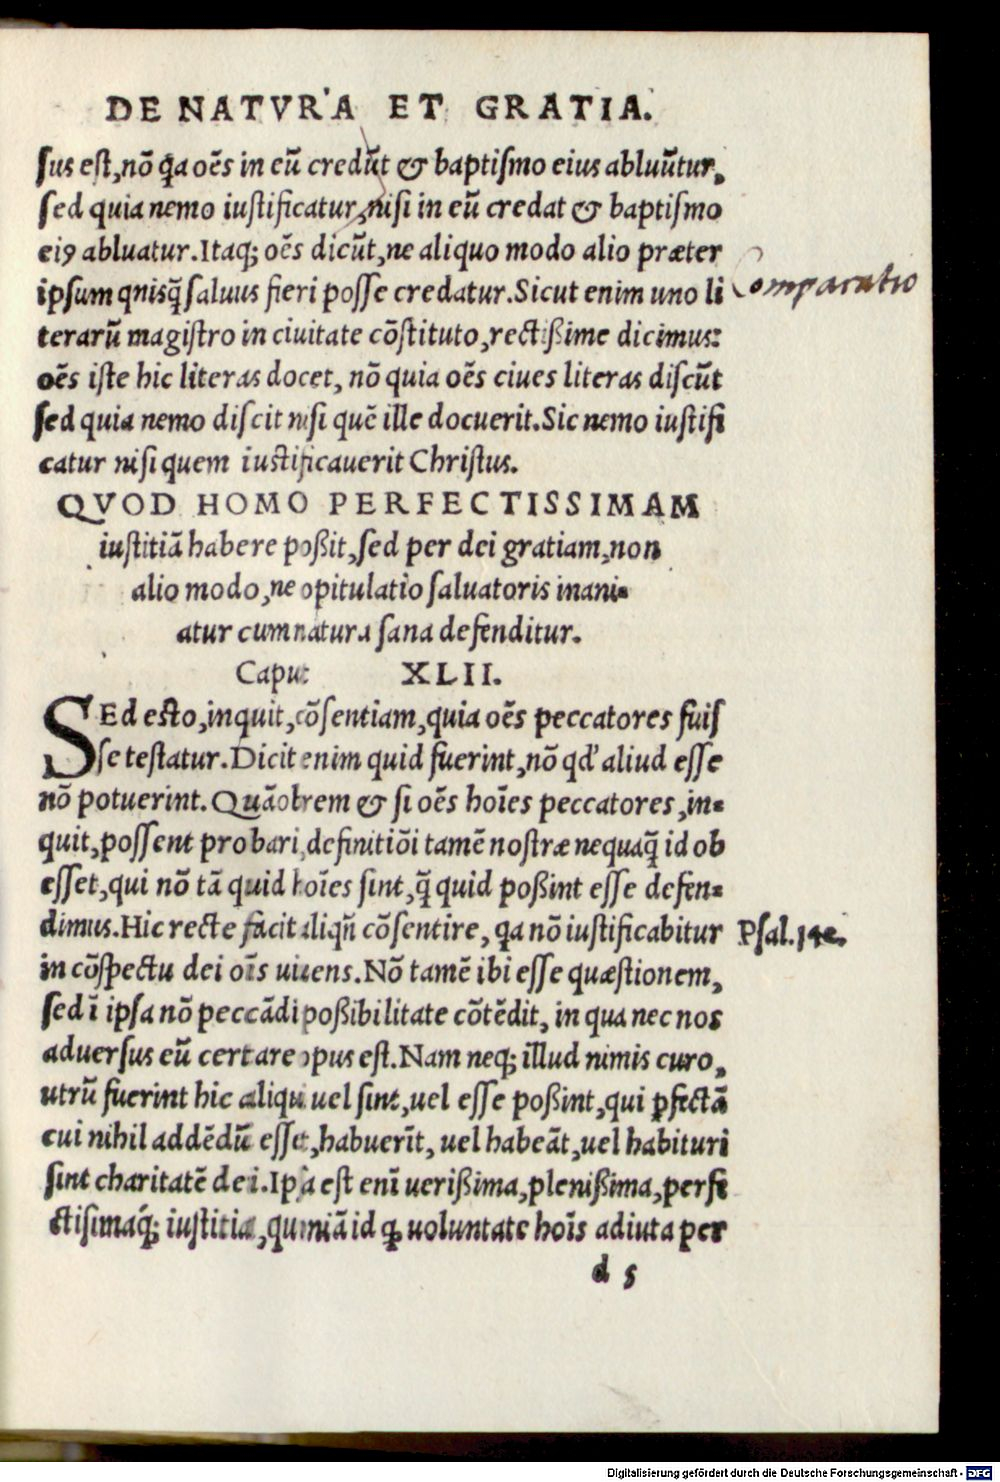 DE NATVRA ET GRATIA.
ſus eſt, nõ q̃a oẽs in eũ credũt & baptiſmo eius abluũtur,
ſed quia nemo iuſtificatur, niſi in eũ credat & baptiſmo
eiꝰ abluatur. Itaq; oẽs dicũt, ne aliquo modo alio præter
ipſum qniſq̃ ſaluus fieri poſſe credatur. Sicut enim uno li
Comparatio
terarũ magiſtro in ciuitate cõſtituto, rectißime dicimus:
oẽs iſte hic literas docet, nõ quia oẽs ciues literas diſcũt
ſed quia nemo diſcit niſi quẽ ille docuerit. Sic nemo iuſtifi
catur niſi quem iuſtificauerit Chriſtus.
QVOD HOMO PERFECTISSIMAM
iuſtitiã habere poßit, ſed per dei gratiam, non
alio modo, ne opitulatio ſaluatoris inani-
atur cum natura ſana defenditur.
Caput XLII.
SEd eſto, inquit, cõſentiam, quia oẽs peccatores fuiſ
ſe teſtatur. Dicit enim quid fuerint, nõ qd' aliud eſſe
nõ potuerint. Quãobrem & ſi oẽs hoĩes peccatores, in-
quit, poſſent probari, definitiõi tamẽ noſtræ nequaq̃ id ob
eſſet, qui nõ tã quid hoĩes ſint, q̃ quid poßint eſſe defen-
dimus. Hic recte facit aliqñ cõſentire, qa nõ iuſtificabitur
Pſal. 142.
in cõſpectu dei oĩs uiuens. Nõ tamẽ ibi eſſe quæſtionem,
ſed ĩ ipſa nõ peccãdi poßibilitate cõtẽdit, in qua nec nos
aduerſus eũ certare opus eſt. Nam neq; illud nimis curo,
utrũ fuerint hic aliqui uel ſint, uel eſſe poßint, qui ꝑfectã
cui nihil addẽdũ eſſet, habuerĩt, uel habeãt, uel habituri
ſint charitatẽ dei. Ipſa eſt enĩ uerißima, plenißima, perfe
ctiſimaq́; iuſtitia, quoniã id qđ uoluntate hoĩs adiuta per
d 5
Digitalisierung gefördert durch die Deutsche Forschungsgemeinschaft - DFG